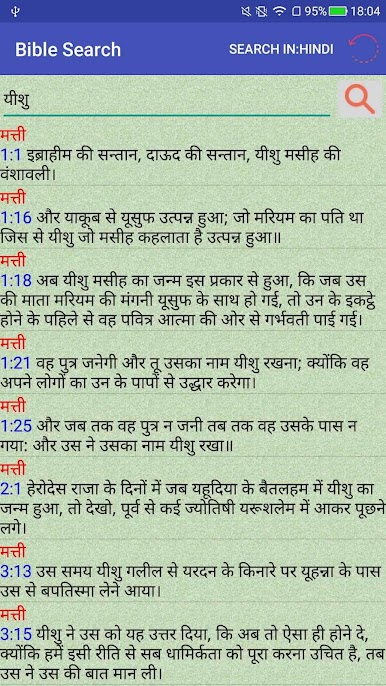 95% 18:04
Bible Search SEARCH IN:HINDI
यीशु
मत्ती
1:1 इब्राहीम की सन्तान, दाऊद की सन्तान, यीशु मसीह की
वंशावली।
मत्ती
1:16 और याकूब से यूसुफ उत्पन्न हुआ; जो मरियम का पति था
जिस से यीशु जो मसीह कहलाता है उत्पन्न हुआ॥
मत्ती
1:18 अब यीशु मसीह का जन्म इस प्रकार से हुआ, कि जब उस
की माता मरियम की मंगनी यूसुफ के साथ हो गई, तो उन के इकट्ठे
होने के पहिले से वह पवित्र आत्मा की ओर से गर्भवती पाई गई।
मत्ती
1:21 वह पुत्र जनेगी और तू उसका नाम यीशु रखना; क्योंकि वह
अपने लोगों का उन के पापों से उद्धार करेगा।
मत्ती
1:25 और जब तक वह पुत्र न जनी तब तक वह उसके पास न
गया: और उस ने उसका नाम यीशु रखा॥
मत्ती
2:1 हेरोदेस राजा के दिनों में जब यहूदिया के बैतलहम में यीशु का
जन्म हुआ, तो देखो, पूर्व से कई ज्योतिषी यरूशलेम में आकर पूछने
लगे।
मत्ती
3:13 उस समय यीशु गलील से यरदन के किनारे पर यूहन्ना के पास
उस से बपतिस्मा लेने आया।
मत्ती
3:15 यीशु ने उस को यह उत्तर दिया, कि अब तो ऐसा ही होने दे,
क्योंकि हमें इसी रीति से सब धामिर्कता को पूरा करना उचित है, तब
उस ने उस की बात मान ली।